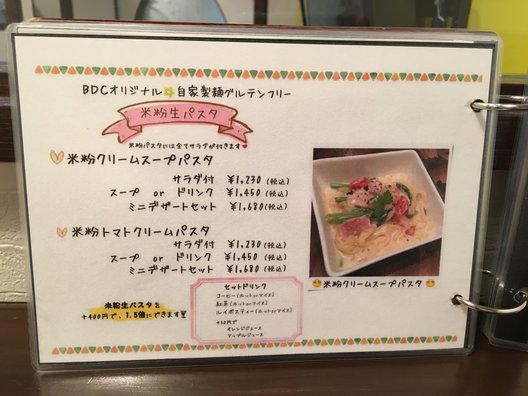 BDCオリジナル 自家製麺グルテンフリー
米粉生パスタ
米粉パスタには全てサラダが付きます
米粉クリームスープパスタ
サラダ付 ¥1,230 (税込)
スープ or ドリンク ¥1,450 (税込)
ミニデザートセット ¥1,680 (税込)
米粉トマトクリームパスタ
サラダ付 ¥1,230 (税込)
スープ or ドリンク ¥1,450 (税込)
ミニデザートセット ¥1,680 (税込)
米粉クリームスープパスタ
米粉生パスタを
+400円で、1.5倍にできます
セットドリンク
コーヒー(ホットorアイス)
紅茶(ホットorアイス)
ルイボスティー(ホットorアイス)
オレンジジュース
アップルジュース